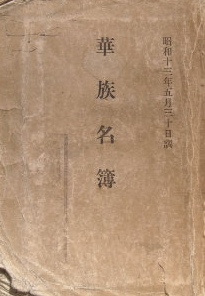 昭和十二年五月三十日調
華族名簿